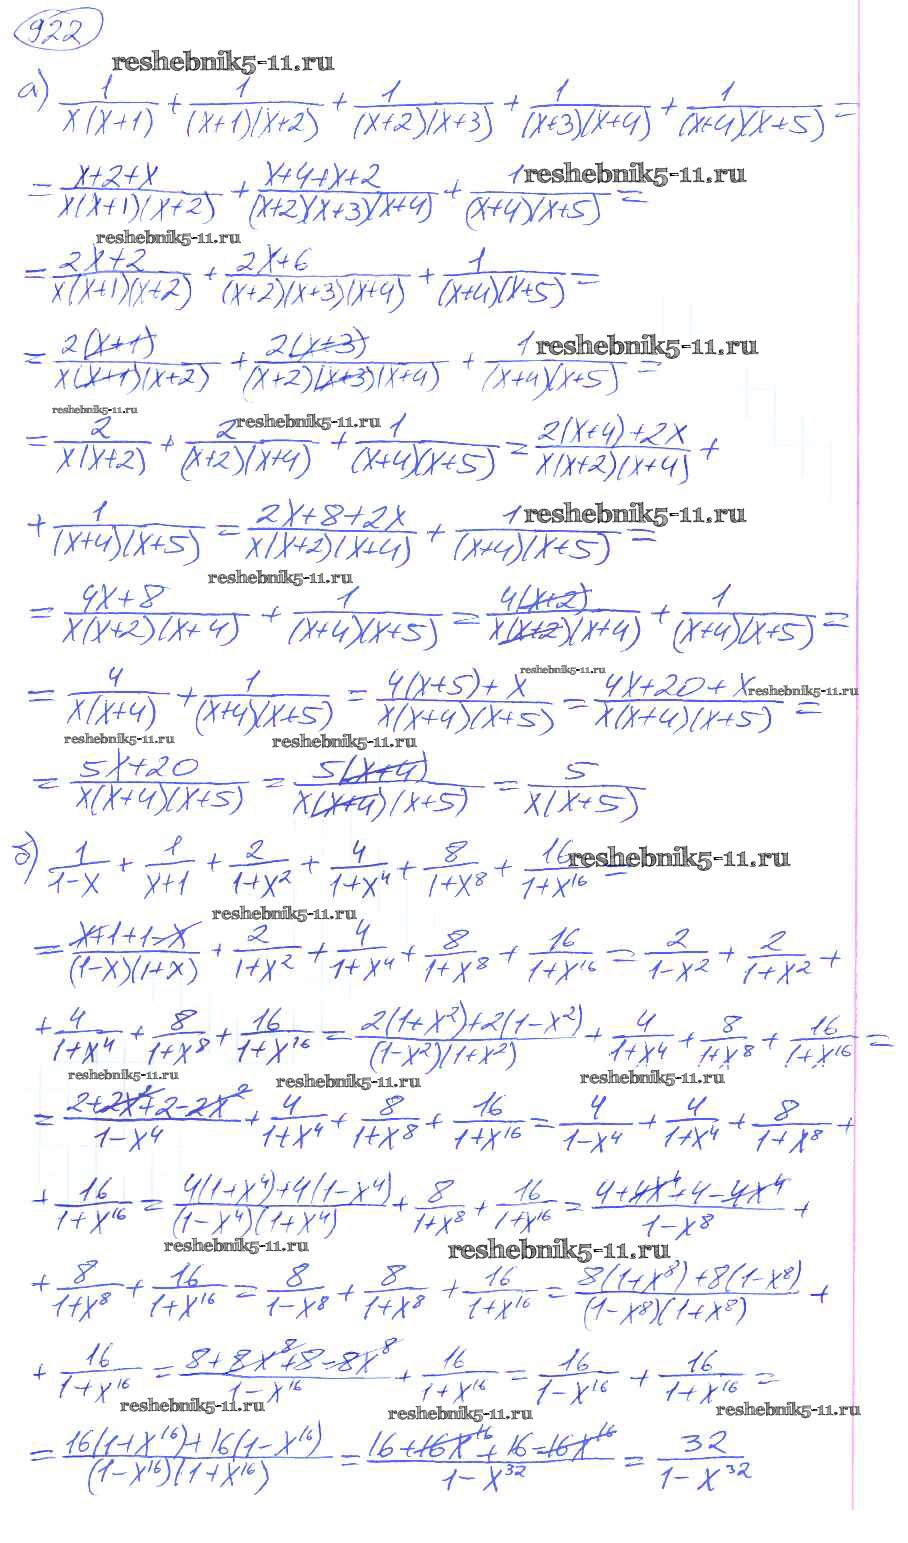 922
reshebnik5-11.ru
а) 1/(x(x+1)) + 1/((x+1)(x+2)) + 1/((x+2)(x+3)) + 1/((x+3)(x+4)) + 1/((x+4)(x+5)) =
= (x+2+x)/(x(x+1)(x+2)) + (x+4+x+2)/((x+2)(x+3)(x+4)) + 1/((x+4)(x+5)) =
reshebnik5-11.ru
reshebnik5-11.ru
= (2x+2)/(x(x+1)(x+2)) + (2x+6)/((x+2)(x+3)(x+4)) + 1/((x+4)(x+5)) =
= 2(x+1)/(x(x+1)(x+2)) + 2(x+3)/((x+2)(x+3)(x+4)) + 1/((x+4)(x+5)) =
reshebnik5-11.ru
reshebnik5-11.ru
reshebnik5-11.ru
= 2/(x(x+2)) + 2/((x+2)(x+4)) + 1/((x+4)(x+5)) = (2(x+4)+2x)/(x(x+2)(x+4)) +
+ 1/((x+4)(x+5)) = (2x+8+2x)/(x(x+2)(x+4)) + 1/((x+4)(x+5)) =
reshebnik5-11.ru
reshebnik5-11.ru
= (4x+8)/(x(x+2)(x+4)) + 1/((x+4)(x+5)) = 4(x+2)/(x(x+2)(x+4)) + 1/((x+4)(x+5)) =
reshebnik5-11.ru
= 4/(x(x+4)) + 1/((x+4)(x+5)) = (4(x+5)+x)/(x(x+4)(x+5)) = (4x+20+x)/(x(x+4)(x+5)) =
reshebnik5-11.ru
reshebnik5-11.ru
reshebnik5-11.ru
= (5x+20)/(x(x+4)(x+5)) = 5(x+4)/(x(x+4)(x+5)) = 5/(x(x+5))
б) 1/(1-x) + 1/(x+1) + 2/(1+x²) + 4/(1+x⁴) + 8/(1+x⁸) + 16/(1+x¹⁶) =
reshebnik5-11.ru
reshebnik5-11.ru
= (x+1+1-x)/((1-x)(1+x)) + 2/(1+x²) + 4/(1+x⁴) + 8/(1+x⁸) + 16/(1+x¹⁶) = 2/(1-x²) + 2/(1+x²) +
+ 4/(1+x⁴) + 8/(1+x⁸) + 16/(1+x¹⁶) = (2(1+x²)+2(1-x²))/((1-x²)(1+x²)) + 4/(1+x⁴) + 8/(1+x⁸) + 16/(1+x¹⁶) =
reshebnik5-11.ru
reshebnik5-11.ru
reshebnik5-11.ru
= (2+2x²+2-2x²)/(1-x⁴) + 4/(1+x⁴) + 8/(1+x⁸) + 16/(1+x¹⁶) = 4/(1-x⁴) + 4/(1+x⁴) + 8/(1+x⁸) +
+ 16/(1+x¹⁶) = (4(1+x⁴)+4(1-x⁴))/((1-x⁴)(1+x⁴)) + 8/(1+x⁸) + 16/(1+x¹⁶) = (4+4x⁴+4-4x⁴)/(1-x⁸) +
reshebnik5-11.ru
reshebnik5-11.ru
+ 8/(1+x⁸) + 16/(1+x¹⁶) = 8/(1-x⁸) + 8/(1+x⁸) + 16/(1+x¹⁶) = (8(1+x⁸)+8(1-x⁸))/((1-x⁸)(1+x⁸)) +
+ 16/(1+x¹⁶) = (8+8x⁸+8-8x⁸)/(1-x¹⁶) + 16/(1+x¹⁶) = 16/(1-x¹⁶) + 16/(1+x¹⁶) =
reshebnik5-11.ru
reshebnik5-11.ru
reshebnik5-11.ru
= (16(1+x¹⁶)+16(1-x¹⁶))/((1-x¹⁶)(1+x¹⁶)) = (16+16x¹⁶+16-16x¹⁶)/(1-x³²) = 32/(1-x³²)